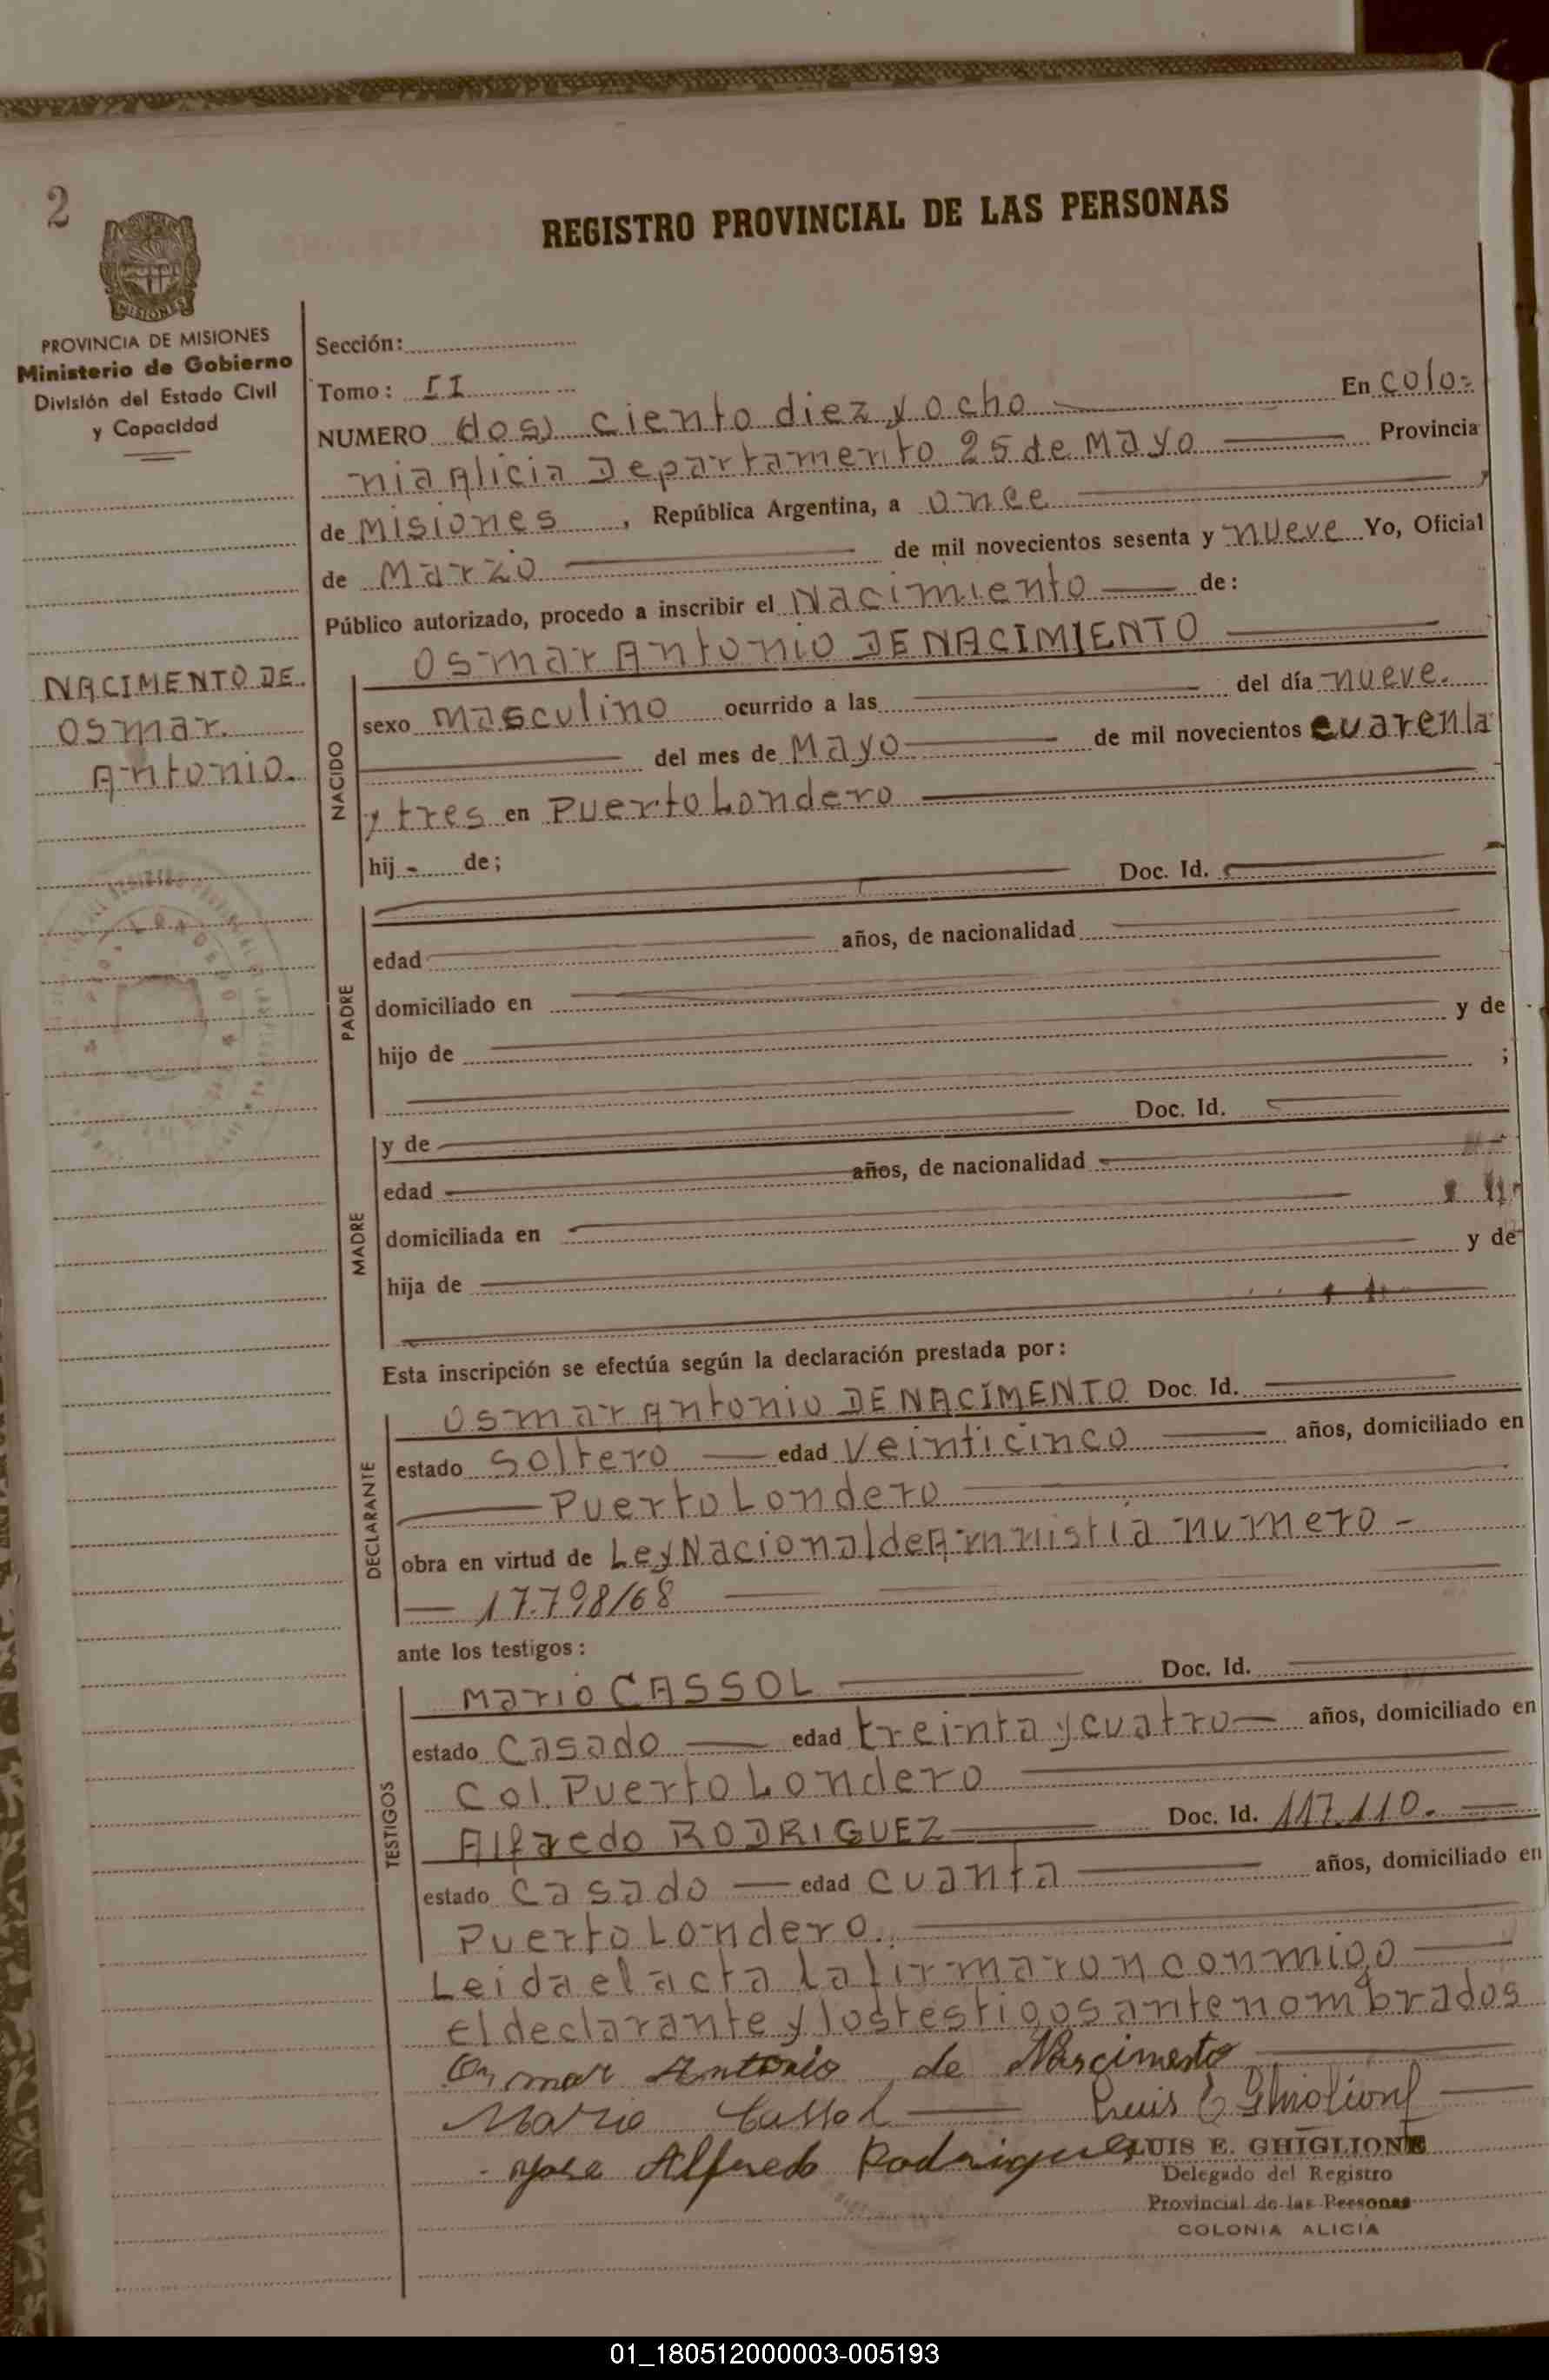 2
REGISTRO PROVINCIAL DE LAS PERSONAS
MISIONES
PROVINCIA DE MISIONES
Ministerio de Gobierno
División del Estado Civil
y Capacidad
NACIMENTO DE.
Osmar.
Antonio.
Sección:
Tomo: II
NUMERO dos) ciento diez y ocho En Colo=
nia Alicia Departamento 25 de Mayo Provincia
de Misiones, República Argentina, a once
de Marzo de mil novecientos sesenta y nueve Yo, Oficial
Público autorizado, procedo a inscribir el Nacimiento de:
NACIDO
Osmar Antonio DE NACIMIENTO
sexo masculino ocurrido a las del día nueve.
del mes de Mayo de mil novecientos cuarenta
y tres en Puerto Londero
hij - de;
PADRE
Doc. Id.
edad años, de nacionalidad
domiciliado en
hijo de y de
;
MADRE
y de Doc. Id.
edad años, de nacionalidad
domiciliada en
hija de y de
Esta inscripción se efectúa según la declaración prestada por:
DECLARANTE
Osmar Antonio DE NACIMENTO Doc. Id.
estado Soltero edad Veinticinco años, domiciliado en
Puerto Londero
obra en virtud de Ley Nacional de Amnistia numero -
17.798/68
ante los testigos:
TESTIGOS
Mario CASSOL Doc. Id.
estado Casado edad treinta y cuatro años, domiciliado en
Col. Puerto Londero
Alfredo RODRIGUEZ Doc. Id. 117.110.
estado Casado edad cuanta años, domiciliado en
Puerto Londero.
Leida el acta la firmaron conmigo
el declarante y los testigos antenombrados
Osmar Antonio de Nascimento
Mario Cassol Luis E Ghiglione
Jose Alfredo Rodriguez
LUIS E. GHIGLIONE
Delegado del Registro
Provincial de las Personas
COLONIA ALICIA
01_180512000003-005193